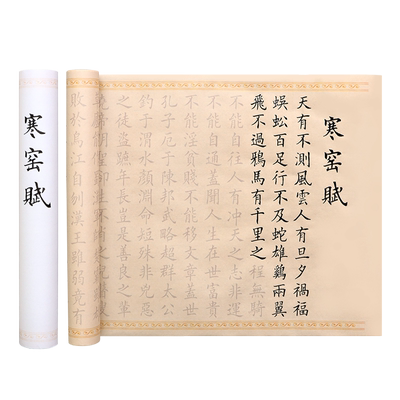 寒窑賦
天有不測風雲人有旦夕禍福
蜈蚣百足行不及蛇雄鷄兩翼
飛不過鴉馬有千里之程無騎
不能自往人有冲天之志非運
不能自通蓋聞人生在世富貴
不能淫貧賤不能移文章蓋世
孔子厄于陳邦武略超群太公
釣于渭水顏淵命短殊非兇惡
之徒盜跖年長豈是善良之輩
敗於烏江自刎漢王雖弱竟有
寒窑賦